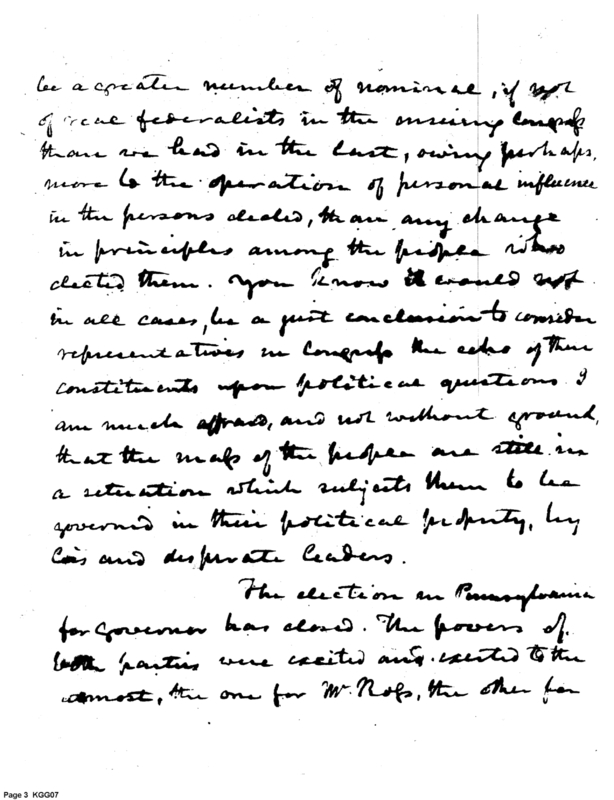 be a greater number of nominal, if not
of real federalists in the ensuing Congress
than we had in the last, owing perhaps,
more to the operation of personal influence
in the persons elected, than any change
in principles among the people who
elected them. You know it would not
in all cases, be a just conclusion to consider
representatives in Congress the echo of their
constituents upon political questions. I
am much afraid, and not without ground,
that the mass of the people are still in
a situation which subjects them to be
governed in their political property, by
and desperate leaders.
The election in Pennsylvania
for governor has closed. The powers of
both parties were excited and exerted to the
utmost, the one for Mr. Ross, the other for
Page 3 KGG07